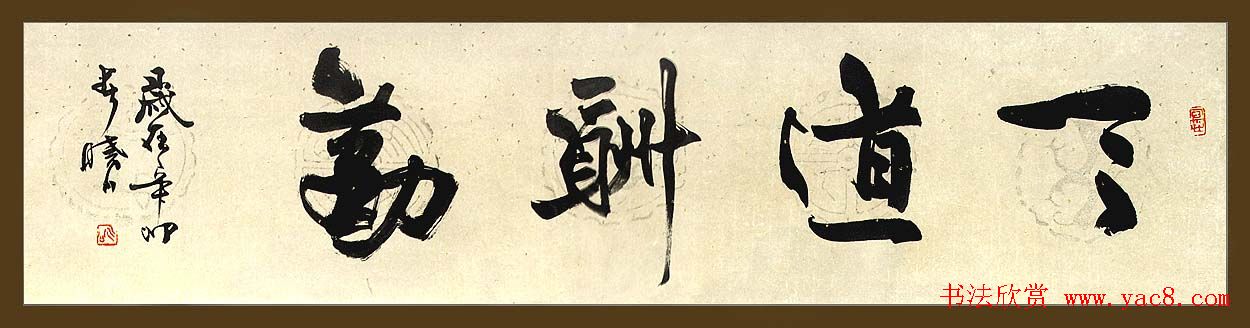 天道酬勤
歲在辛卯
书法欣赏 www.yac8.com